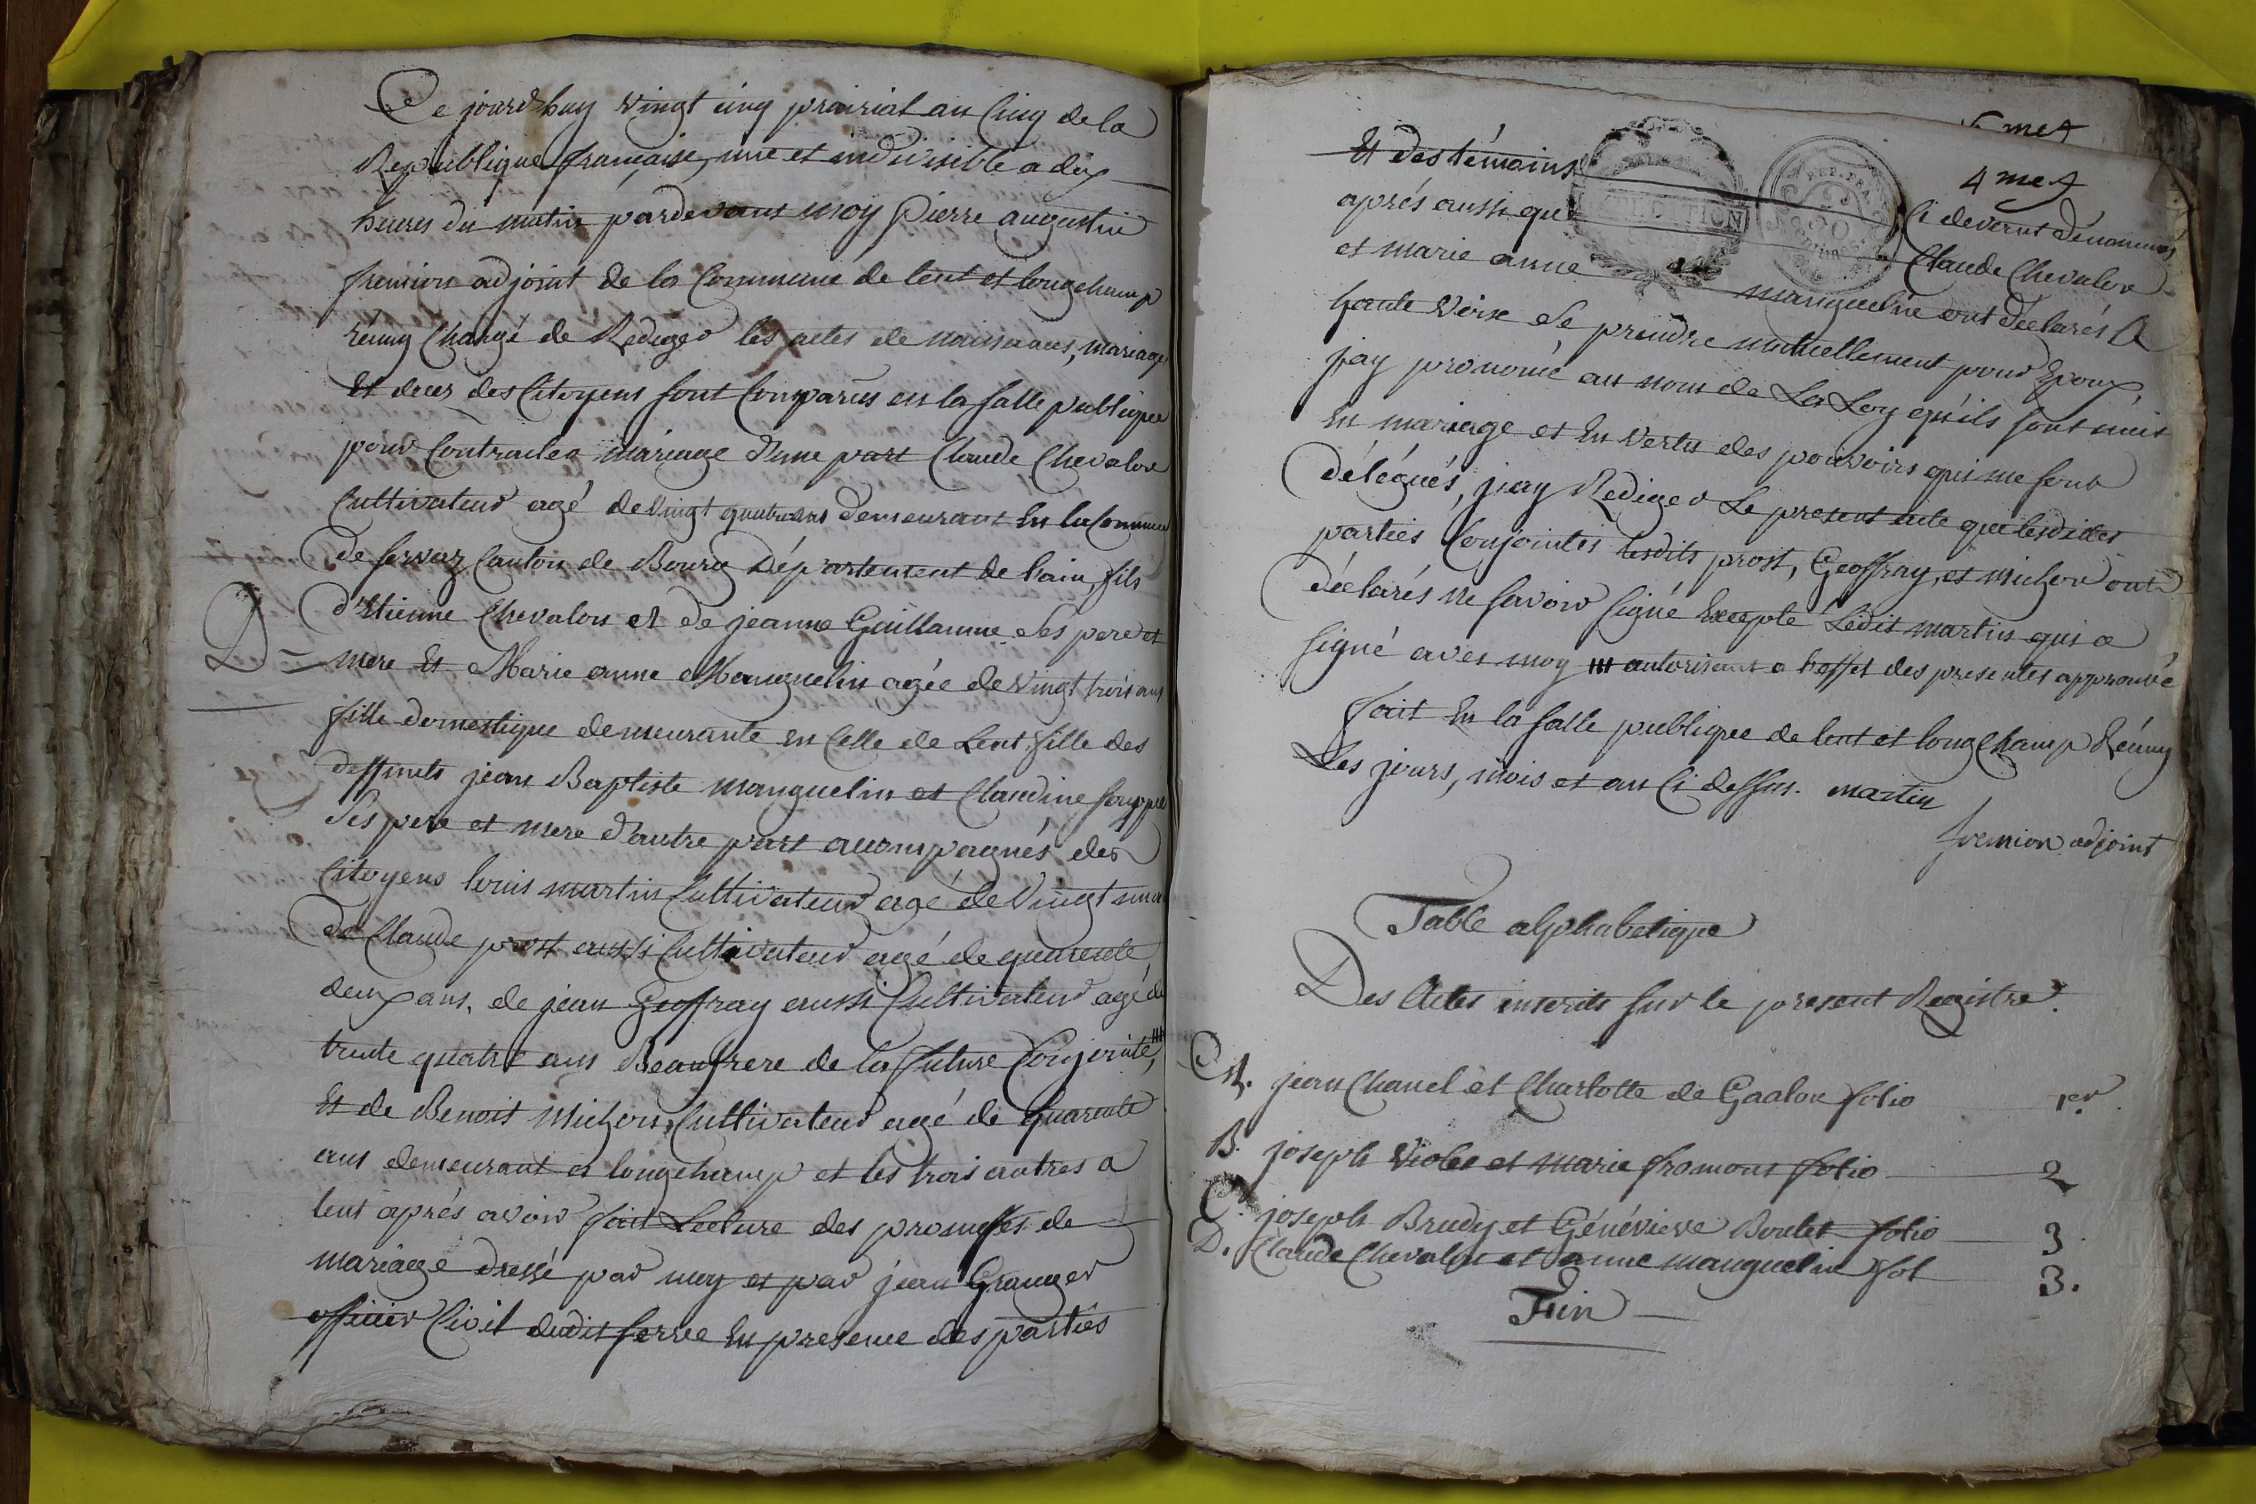 Ce jourd'huy vingt cinq prairial an Cinq de la
Republique française, une et indivisible a dix
heures du matin pardevant moy Pierre augustin
fremion adjoint de la Commune de lent et longchamp
réuny Chargé de Rediger les actes de naissances, mariage
Et decez des Citoyens sont Comparus en la salle publique
pour Contracter mariage d'une part Claude Chevalon
Cultivateur agé de vingt quatre ans demeurant En la Commune
de servaz Canton de Bourg Département de l'ain, fils
d'Etienne Chevalon et de jeanne Guillaume ses pere et
D = mere Et Marie anne Manguelin agée de vingt trois ans
fille domestique demeurante en Celle de Lent, fille des
deffunts jean Baptiste manguelin et Claudine
Ses pere et mere d'autre part accompagnés des
Citoyens louis martin Cultivateur agé de vingt
de Claude prost aussi Cultivateur agé de quarente
deux ans, de jean Geoffray aussi Cultivateur agé de
trente quatre ans Beaufrere de la future Conjointe,
Et de Benoit Michon, Cultivateur agé de quarente
ans demeurant a longchamp et les trois autres a
lent aprés avoir fait Lecture des promesses de
mariage dressé par moy et par jean Granger
officier Civil dudit servé En presence des parties
4 me f
Et des témoins Ci devent dénommés
aprés aussi que Claude Chevalon
et marie anne manguelin ont déclarés A
haute voix Se prendre mutuellement pour Epoux,
j'ay prononcé au nom de La Loy qu'ils sont unis
En mariage et En vertu des pouvoirs qui me sont
délégués, j'ay Rediger Le present acte que lesdites
parties Conjointes lesdits prost, Geoffray, et michon ont
déclarés ne savoir signé Excepté Ledit martin qui a
signé avec moy autorisant a l'effet des presentes approuvé
fait En la salle publique de lent et longChamp Réuny
Les jours, mois et an Ci dessus. martin
fremion adjoint
Table alphabetique
Des Actes inscrits sur le present Registre.
A. jean Chanel et Charlotte de Gaalon folio 1er
B. joseph Violet et Marie fromont folio 2
C. joseph Brudy et Généviève Boulet folio 3
D. Claude Chevalon et anne manguelin fol 3.
Fin